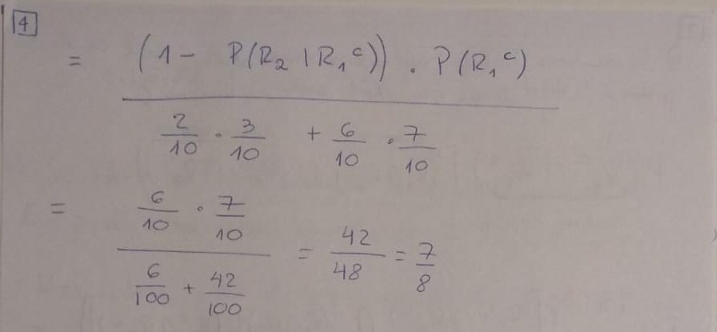 4
= (1 - P(R₂ | R₁ᶜ)) · P(R₁ᶜ)
2/10 · 3/10 + 6/10 · 7/10
= 6/10 · 7/10 / 6/100 + 42/100 = 42/48 = 7/8